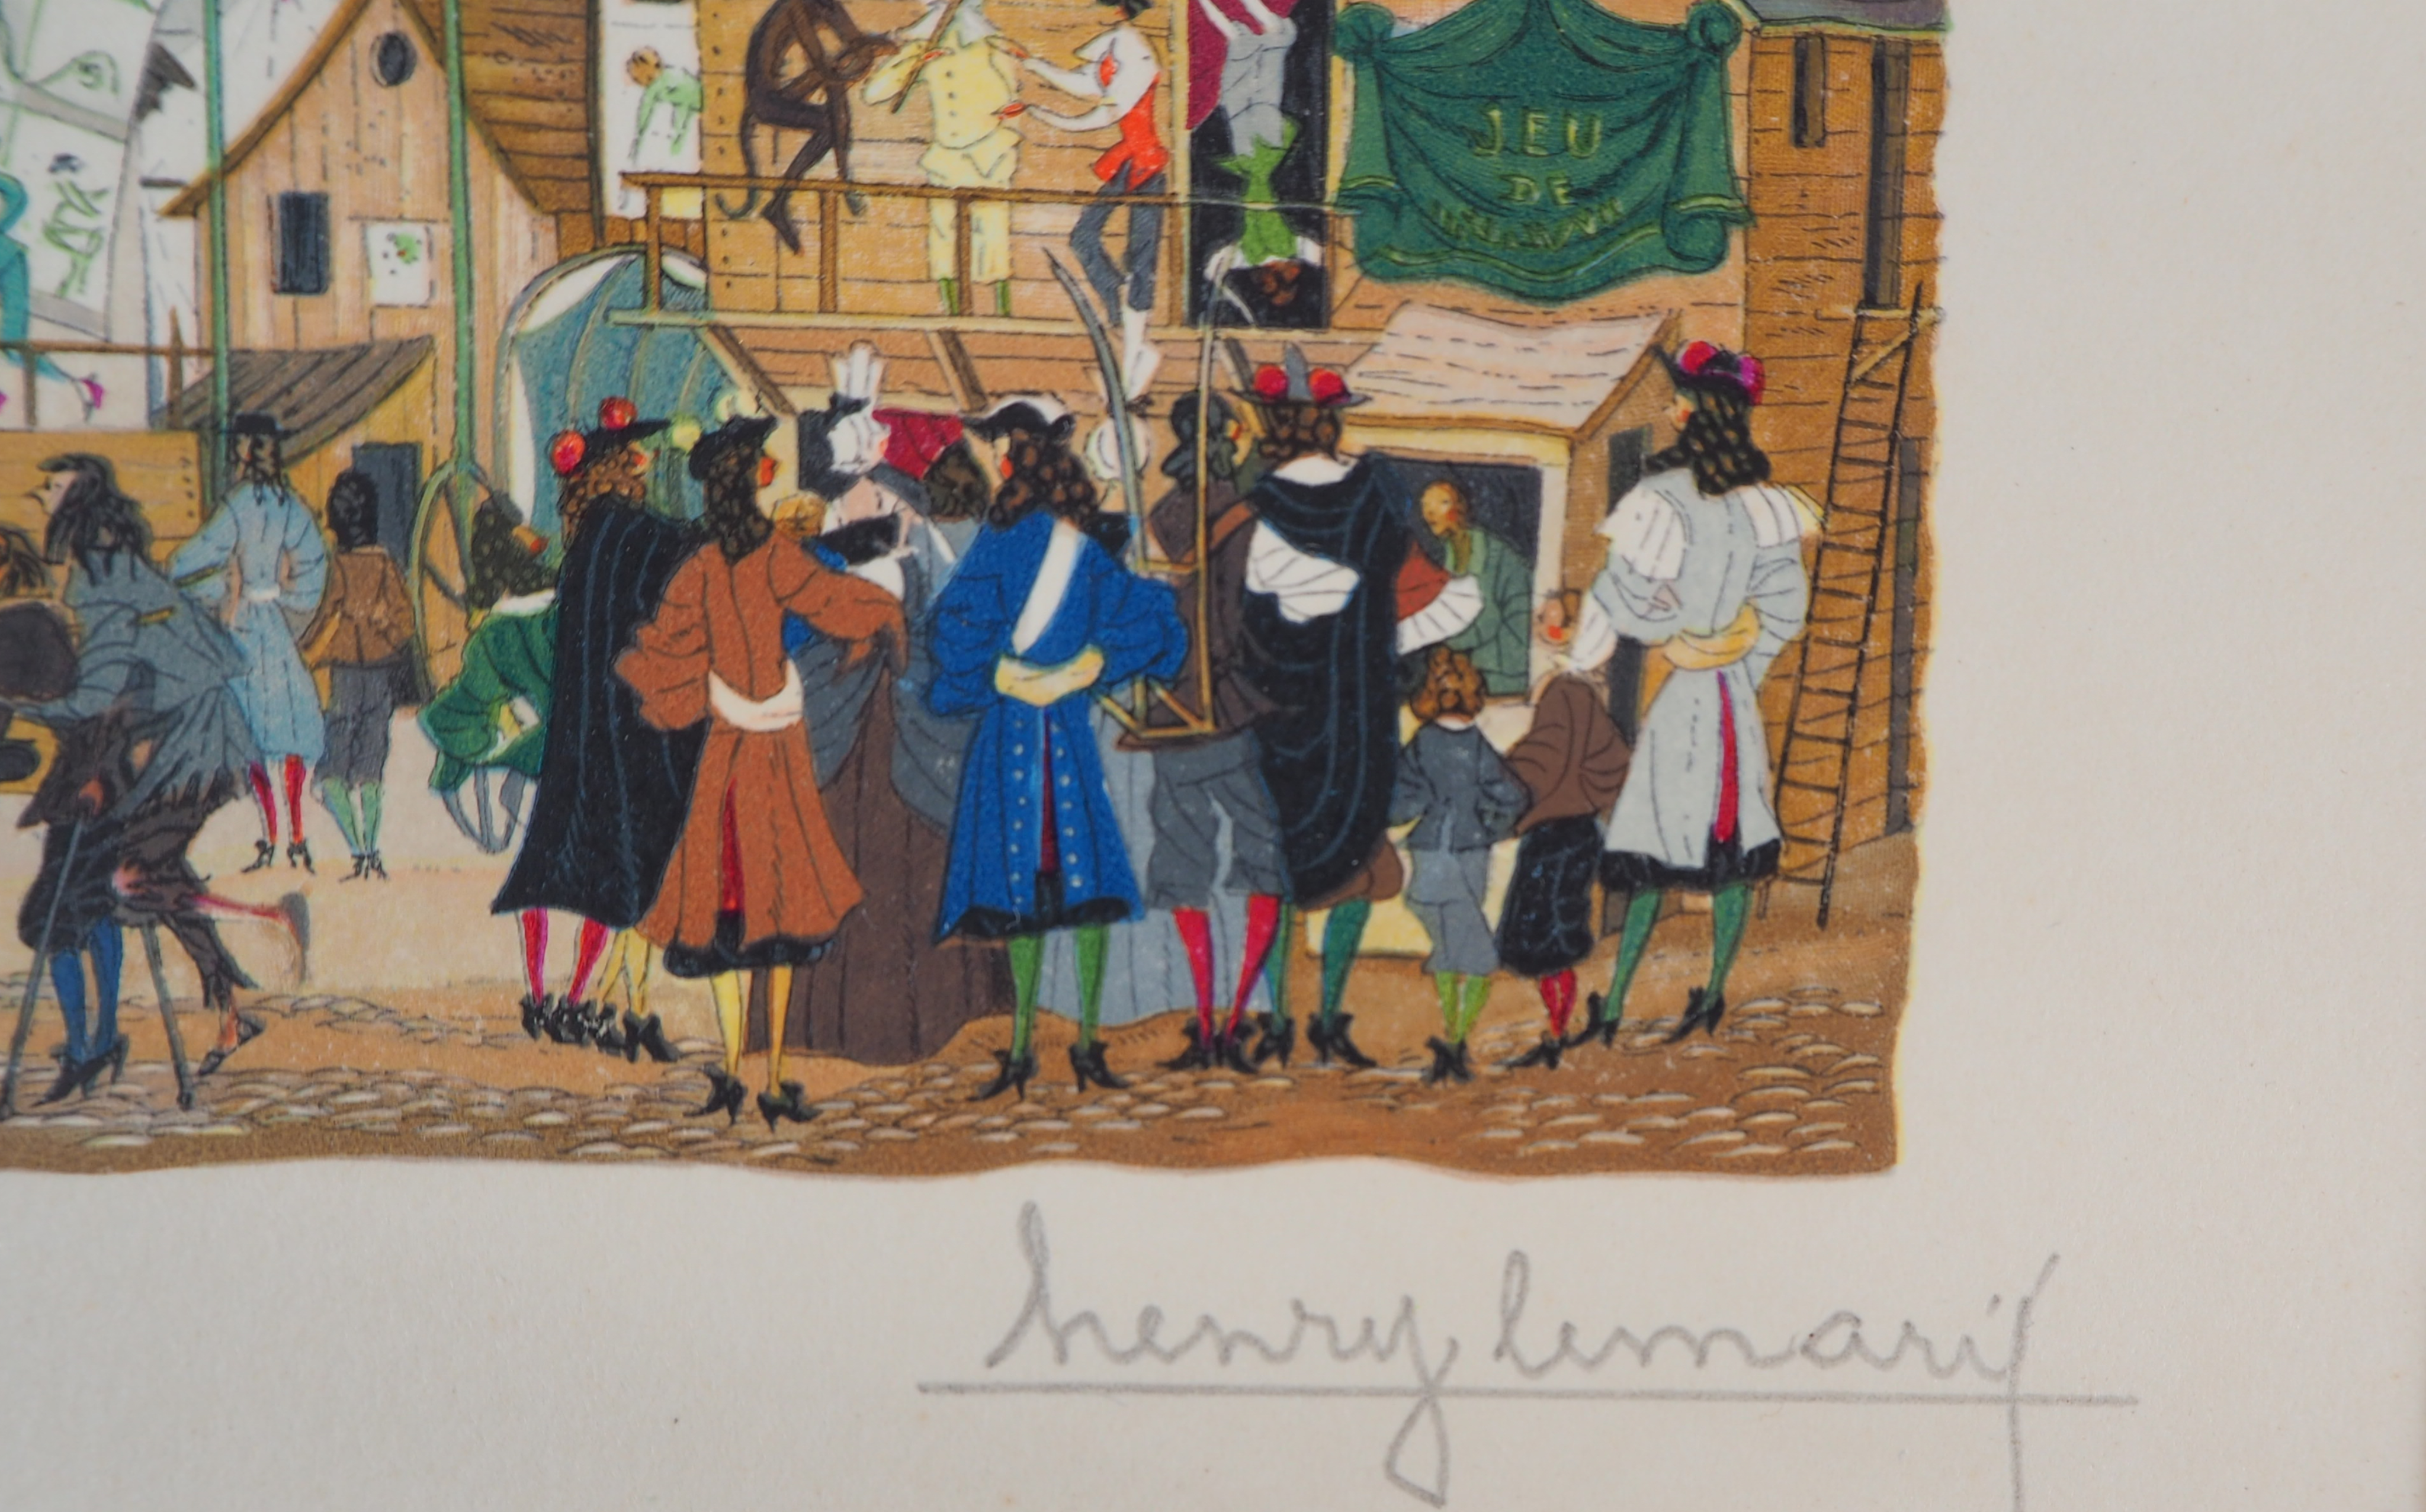 JEU
DE
henry lemarié